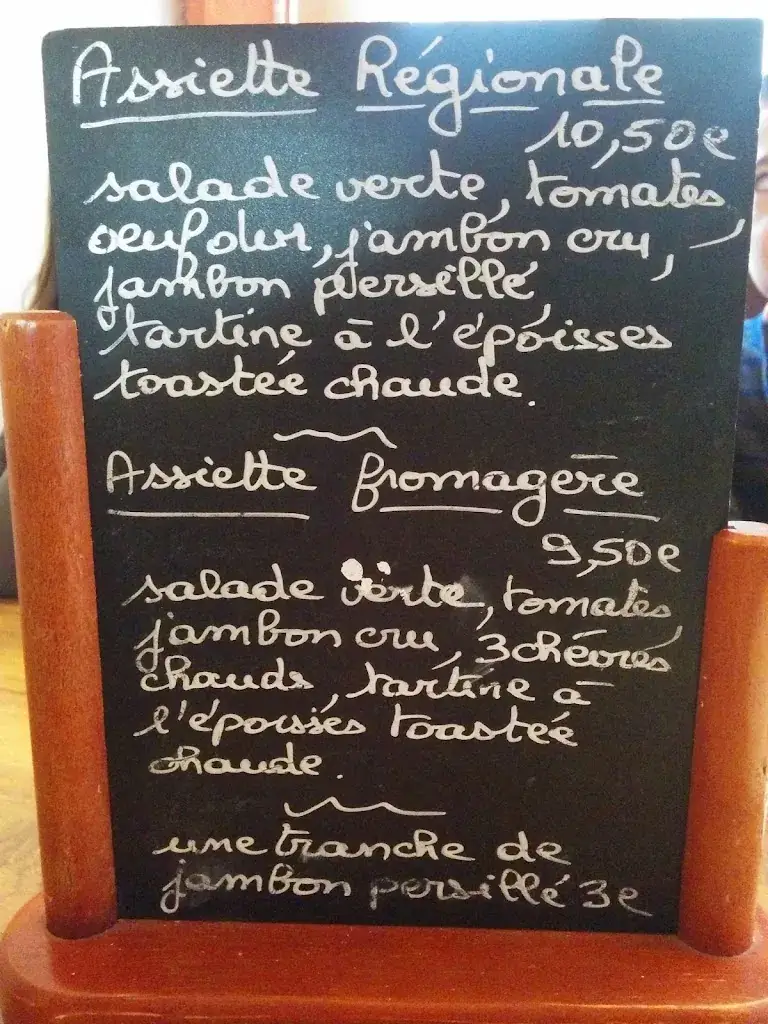 Assiette Régionale
10,50€
salade verte, tomates,
oeuf dur, jambon cru,
jambon persillé,
tartine à l'époisses
toastée chaude.
Assiette fromagère
9,50€
salade verte, tomates,
jambon cru, 3 chèvres
chauds, tartine à
l'époisses toastée
chaude.
une tranche de
jambon persillé 3€